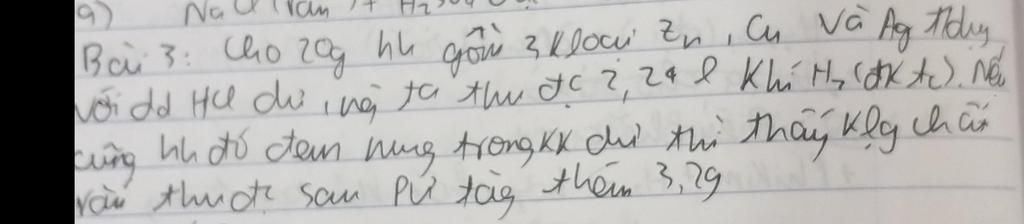 g) Na
Bài 3: Cho 20g hh gồm 3 Kloại Zn, Cu và Ag tdụng
với dd HCl dư, ng ta thu đc 2,24 l Khí H2 (đktc). Nếu
cũng hh đó đem nung trong KK dư thì thấy Klg chất
rắn thu đc sau PƯ tăg thêm 3,2g